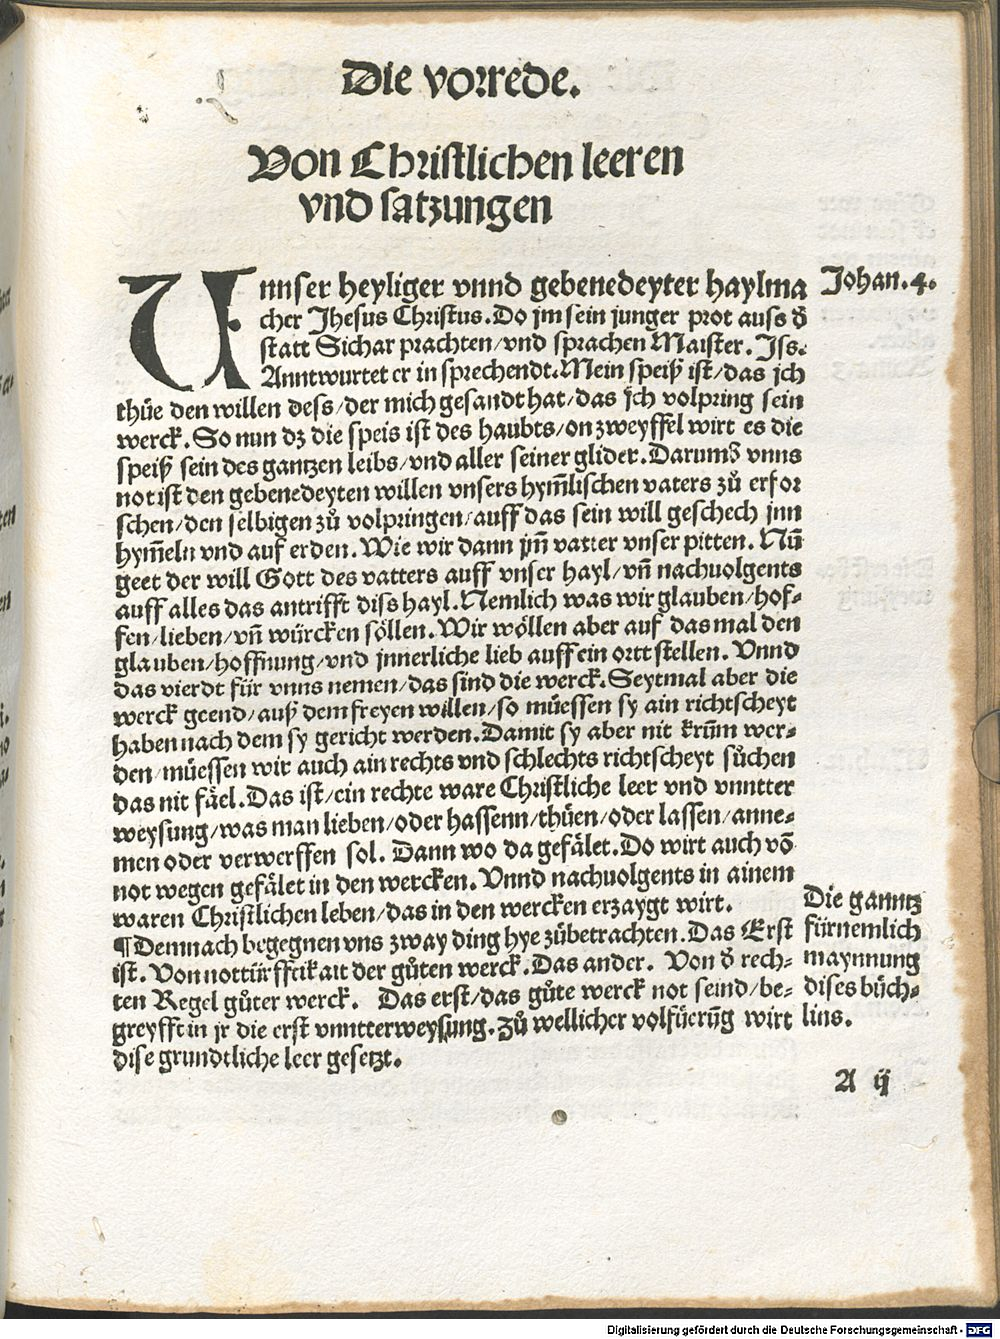 Die vorrede.
Von Christlichen leeren
vnd satzungen
Unnser heyliger vnnd gebenedeyter haylma
Johan. 4.
cher Jhesus Christus. Do jm sein junger prot auss d̕
statt Sichar prachten/vnd sprachen Maister. Iss.
Anntwurtet er in sprechendt. Mein speiß ist/das jch
thüe den willen dess/der mich gesandt hat/das jch volpring sein
werck. So nun dz die speis ist des haubts/on zweyffel wirt es die
speiß sein des gantzen leibs/vnd aller seiner glider. Darumb vnns
not ist den gebenedeyten willen vnsers hym̄lischen vaters zů erfor
schen/den selbigen zů volpringen/auff das sein will geschech jnn
hym̄eln vnd auf erden. Wie wir dann jm̄ vatter vnser pitten. Nū
geet der will Gott des vatters auff vnser hayl/vn̄ nachuolgents
auff alles das antrifft diss hayl. Nemlich was wir glauben/hof-
fen/lieben/vn̄ würcken söllen. Wir wöllen aber auf das mal den
glauben/hoffnung/vnd jnnerliche lieb auff ein ortt stellen. Vnnd
das vierdt für vnns nemen/das sind die werck. Seytmal aber die
werck geend/auß dem freyen willen/so müessen sy ain richtscheyt
haben nach dem sy gericht werden. Damit sy aber nit krūm wer-
den/müessen wir auch ain rechts vnd schlechts richtscheyt sůchen
das nit fäel. Das ist/ein rechte ware Christliche leer vnd vnntter
weysung/was man lieben/oder hassenn/thüen/oder lassen/anne-
men oder verwerffen sol. Dann wo da gefälet. Do wirt auch vō
not wegen gefälet in den wercken. Vnnd nachuolgents in ainem
waren Christlichen leben/das in den wercken erzaygt wirt.
¶ Demnach begegnen vns zway ding hye zůbetrachten. Das Erst
ist. Von nottürfftikait der gůten werck. Das ander. Von d̕ rech-
ten Regel gůter werck. Das erst/das gůte werck not seind/be-
greyfft in jr die erst vnntterweysung. Zů wellicher volfüerūg wirt
dise grundtliche leer gesetzt.
Die ganntz
fürnemlich
maynnung
dises büch-
lins.
A ij
Digitalisierung gefördert durch die Deutsche Forschungsgemeinschaft - DFG